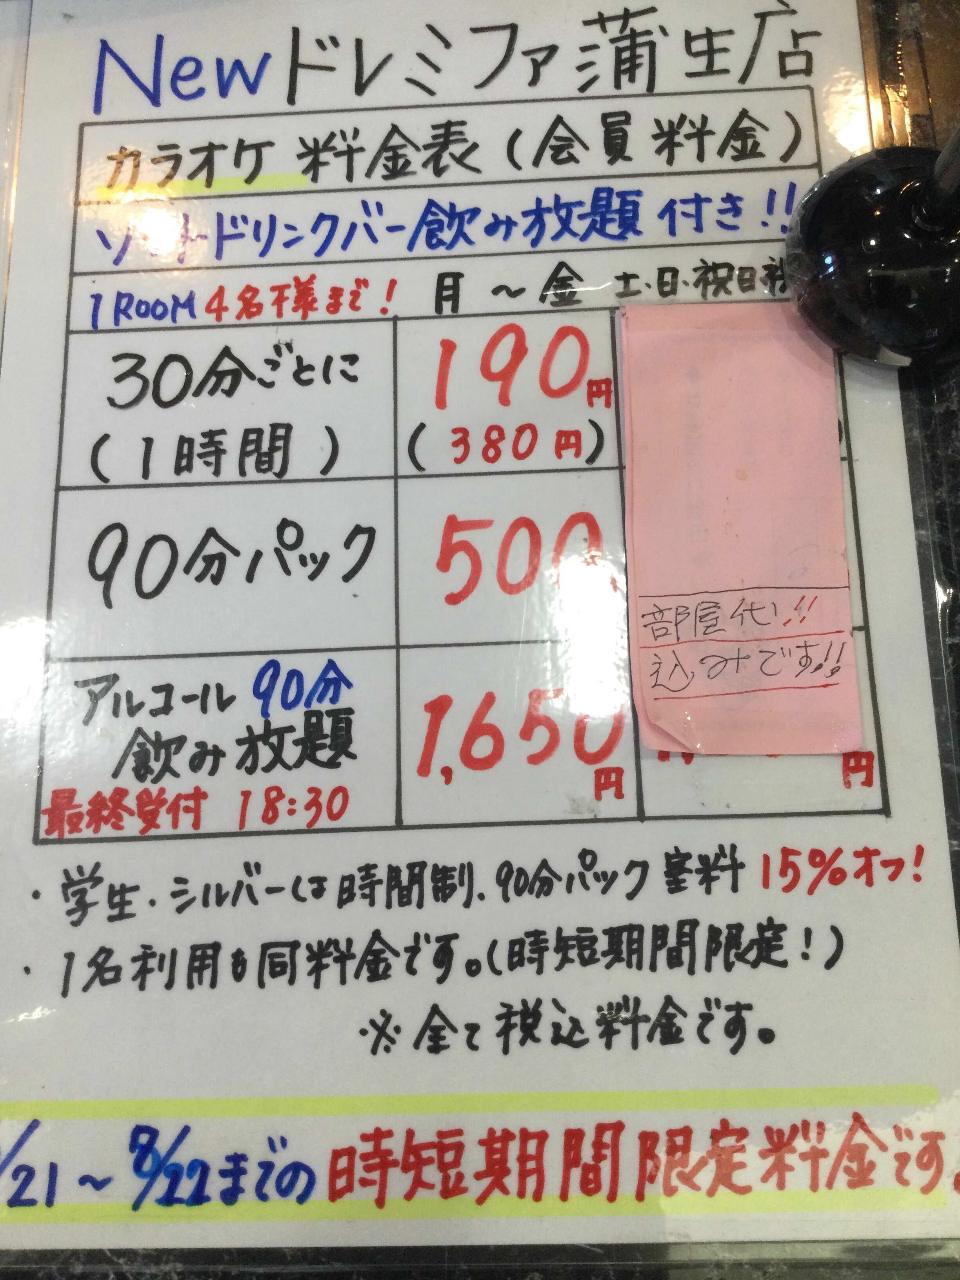 Newドレミファ蒲生店
カラオケ 料金表(会員料金)
ソフトドリンクバー飲み放題 付き!!
1ROOM 4名様まで! 月〜金 土・日・祝日
30分ごとに 190円
(1時間) (380円)
90分パック 500
部屋代!!
込みです!!
アルコール 90分 1,650円 円
飲み放題
最終受付 18:30
・学生・シルバーは時間制、90分パック 室料 15%オフ!
・1名利用も同料金です。(時短期間限定!)
※全て税込料金です。
/21〜8/22までの時短期間限定料金です。